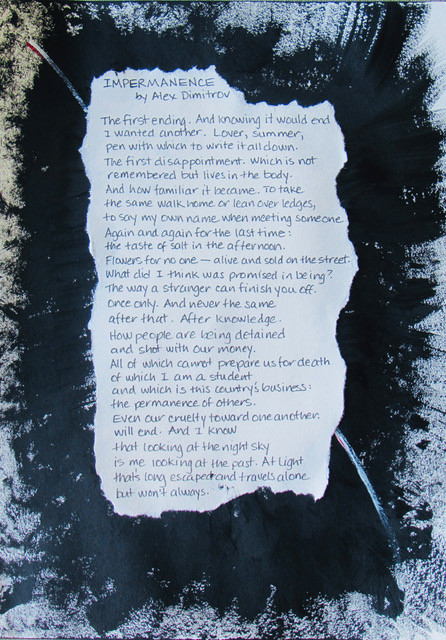 IMPERMANENCE
by Alex Dimitrov
The first ending. And knowing it would end
I wanted another. Lover, summer,
pen with which to write it all down.
The first disappointment. Which is not
remembered but lives in the body.
And how familiar it became. To take
the same walk home or lean over ledges,
to say my own name when meeting someone.
Again and again for the last time:
the taste of salt in the afternoon.
Flowers for no one — alive and sold on the street.
What did I think was promised in being?
The way a stranger can finish you off.
Once only. And never the same
after that. After knowledge.
How people are being detained
and shot with our money.
All of which cannot prepare us for death
of which I am a student
and which is this country's business:
the permanence of others.
Even our cruelty toward one another
will end. And I know
that looking at the night sky
is me looking at the past. At light
that's long escaped and travels alone
but won't always.